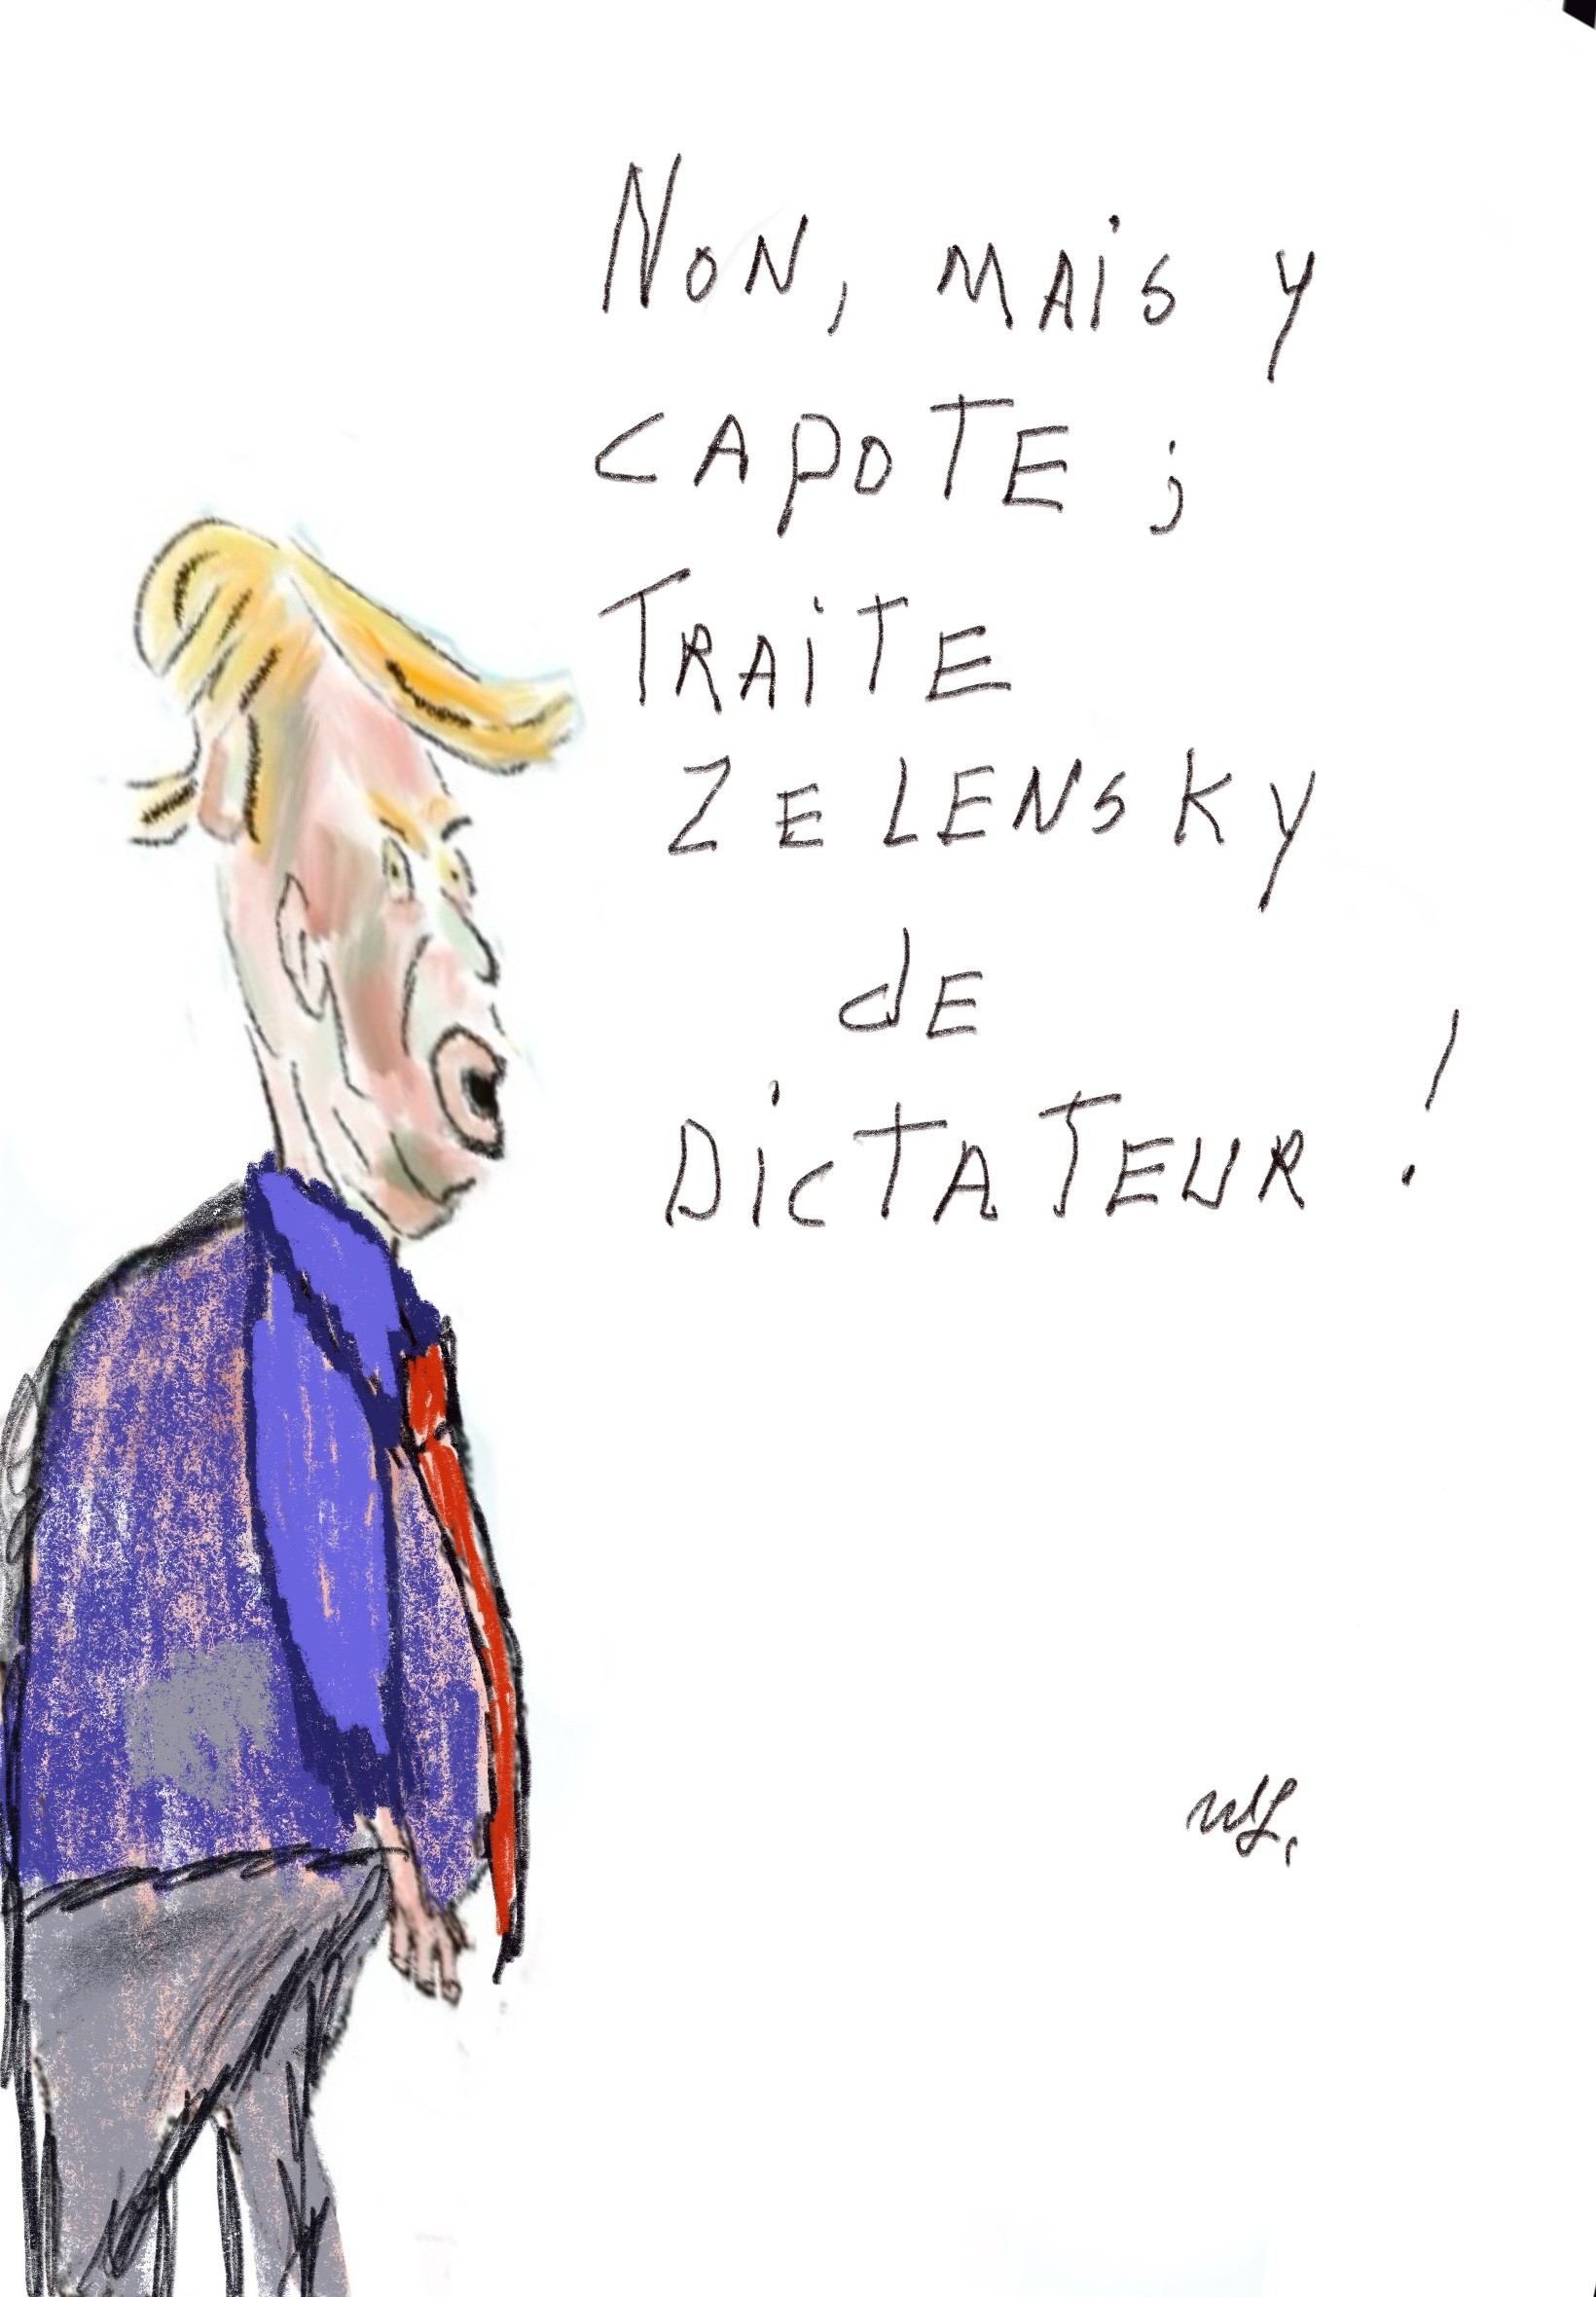 Non, mais y
CAPOTE ;
TRAITE
ZELENSKY
de
DICTATEUR !